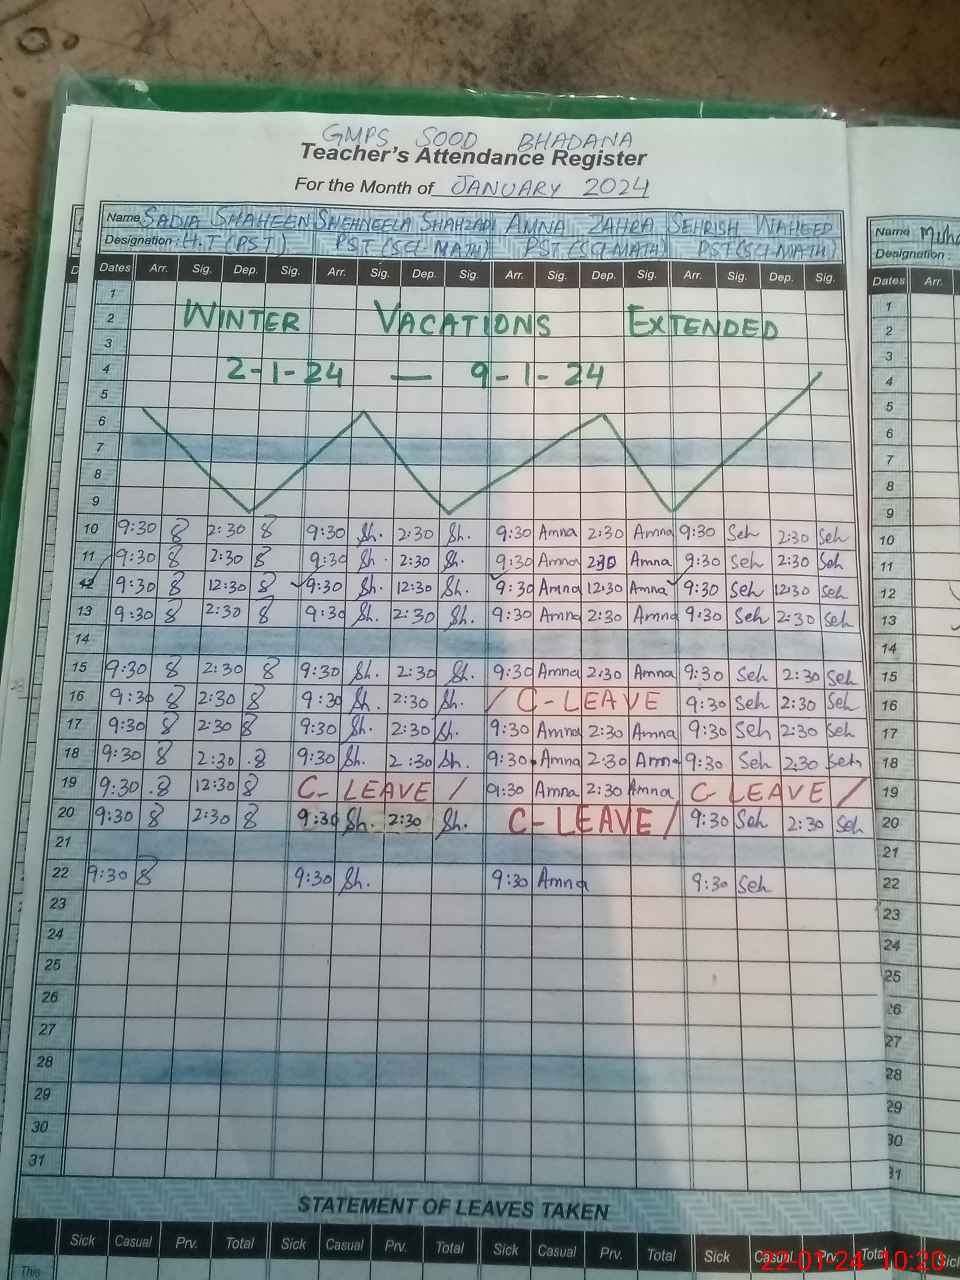 GMPS SOOD BHADANA
Teacher's Attendance Register
For the Month of JANUARY 2024
Name SADIA SHAHEEN SHEHNEELA SHAHZADI AMNA ZAHRA SEHRISH WAHEED Name
Designation: H.T (PST) PST (SCI-MATH) PST (SCI-MATH) PST (SCI-MATH) Designation :
Dates Arr. Sig. Dep. Sig. Arr. Sig. Dep. Sig. Arr. Sig. Dep. Sig. Arr. Sig. Dep. Sig. Dates Arr.
1 1
2 WINTER VACATIONS EXTENDED 2
3 3
4 2-1-24 — 9-1-24 4
5 5
6 6
7 7
8 8
9 9
10 9:30 8 2:30 8 9:30 Sh. 2:30 Sh. 9:30 Amna 2:30 Amna 9:30 Seh 2:30 Seh 10
11 9:30 8 2:30 8 9:30 Sh. 2:30 Sh. 9:30 Amna 2:30 Amna 9:30 Seh 2:30 Seh 11
12 9:30 8 12:30 8 9:30 Sh. 12:30 Sh. 9:30 Amna 12:30 Amna 9:30 Seh 12:30 Seh 12
13 9:30 8 2:30 8 9:30 Sh. 2:30 Sh. 9:30 Amna 2:30 Amna 9:30 Seh 2:30 Seh 13
14 14
15 9:30 8 2:30 8 9:30 Sh. 2:30 Sh. 9:30 Amna 2:30 Amna 9:30 Seh 2:30 Seh 15
16 9:30 8 2:30 8 9:30 Sh. 2:30 Sh. / C-LEAVE 9:30 Seh 2:30 Seh 16
17 9:30 8 2:30 8 9:30 Sh. 2:30 Sh. 9:30 Amna 2:30 Amna 9:30 Seh 2:30 Seh 17
18 9:30 8 2:30 8 9:30 Sh. 2:30 Sh. 9:30 Amna 2:30 Amna 9:30 Seh 2:30 Seh 18
19 9:30 8 12:30 8 C-LEAVE / 9:30 Amna 2:30 Amna C-LEAVE / 19
20 9:30 8 2:30 8 9:30 Sh. 2:30 Sh. C-LEAVE / 9:30 Seh 2:30 Seh 20
21 21
22 9:30 8 9:30 Sh. 9:30 Amna 9:30 Seh 22
23 23
24 24
25 25
26 26
27 27
28 28
29 29
30 30
31 31
STATEMENT OF LEAVES TAKEN
Sick Casual Prv. Total Sick Casual Prv. Total Sick Casual Prv. Total Sick Casual Prv. Total Sick
This
22-01-24 10:20